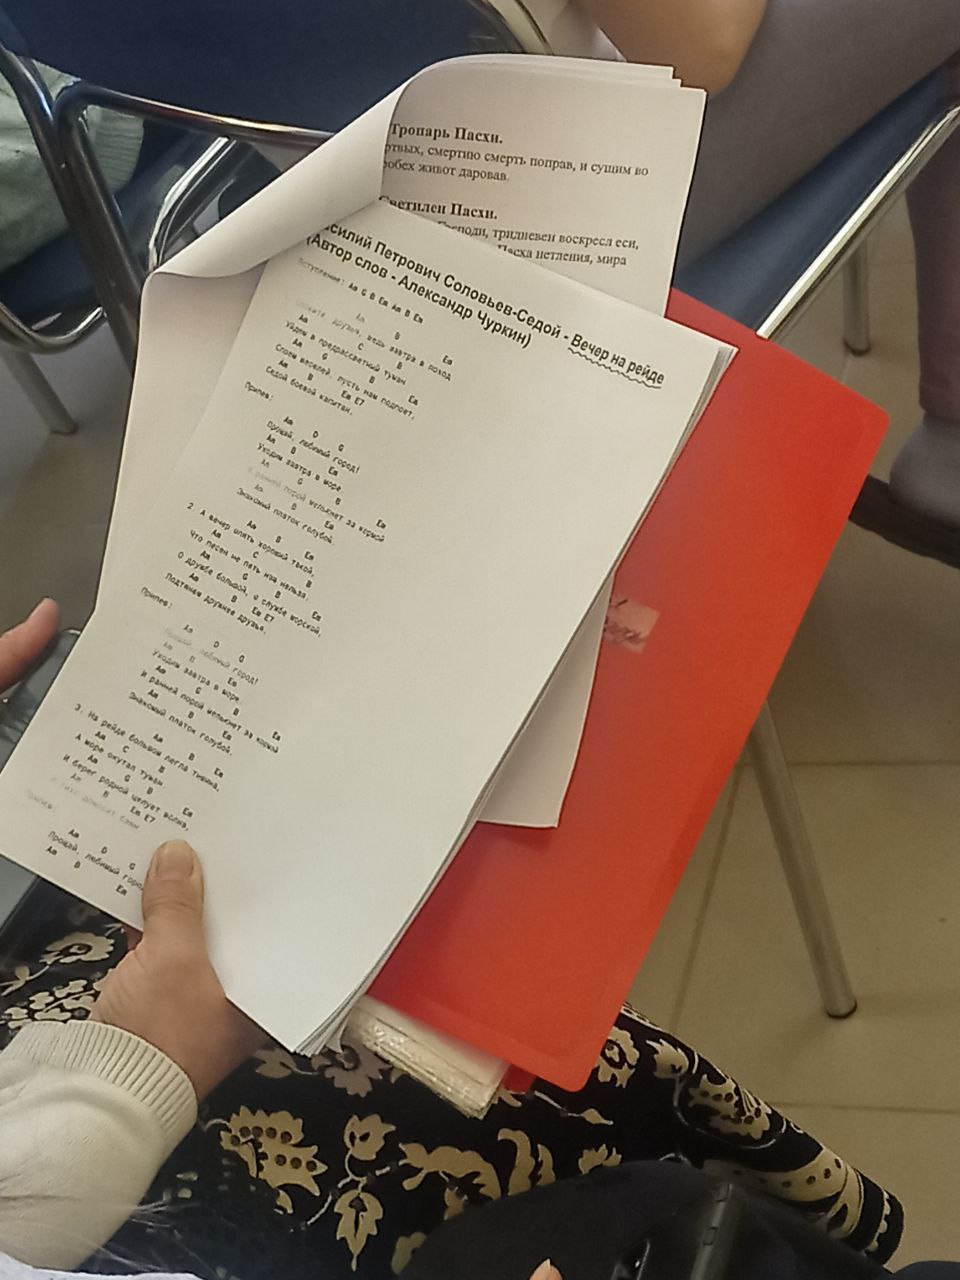 Тропарь Пасхи.
смертию смерть поправ, и сущим во
живот даровав.
Светилен Пасхи.
тридневен воскресл еси,
Пасха нетления, мира
Петрович Соловьев-Седой - Вечер на рейде
(Автор слов - Александр Чуркин)
Вступление: Am G B Em Am B Em
Am B Em
друзья, ведь завтра в поход
Am C B
Уйдем в предрассветный туман
Am G B Em
Споем веселей, пусть нам подпоет,
Am B Em E7
Седой боевой капитан.
Припев:
Am D G
Прощай, любимый город!
Am B Em
Уходим завтра в море,
Am G B
И ранней порой мелькнет за кормой
Am B Em
Знакомый платок голубой.
Am B Em
2. А вечер опять хороший такой,
Am C B
Что песен не петь нам нельзя,
Am G B Em
О дружбе большой, о службе морской,
Am B Em E7
Подтянем дружнее друзья.
Припев:
Am D G
Прощай, любимый город!
Am B Em
Уходим завтра в море,
Am G B Em
И ранней порой мелькнет за кормой
Am B Em
Знакомый платок голубой.
Am B Em
3. На рейде большом легла тишина,
Am C B
А море окутал туман
Am G B Em
И берег родной целует волна,
Am B Em E7
Припев:
Am D G
Прощай, любимый
Am B Em